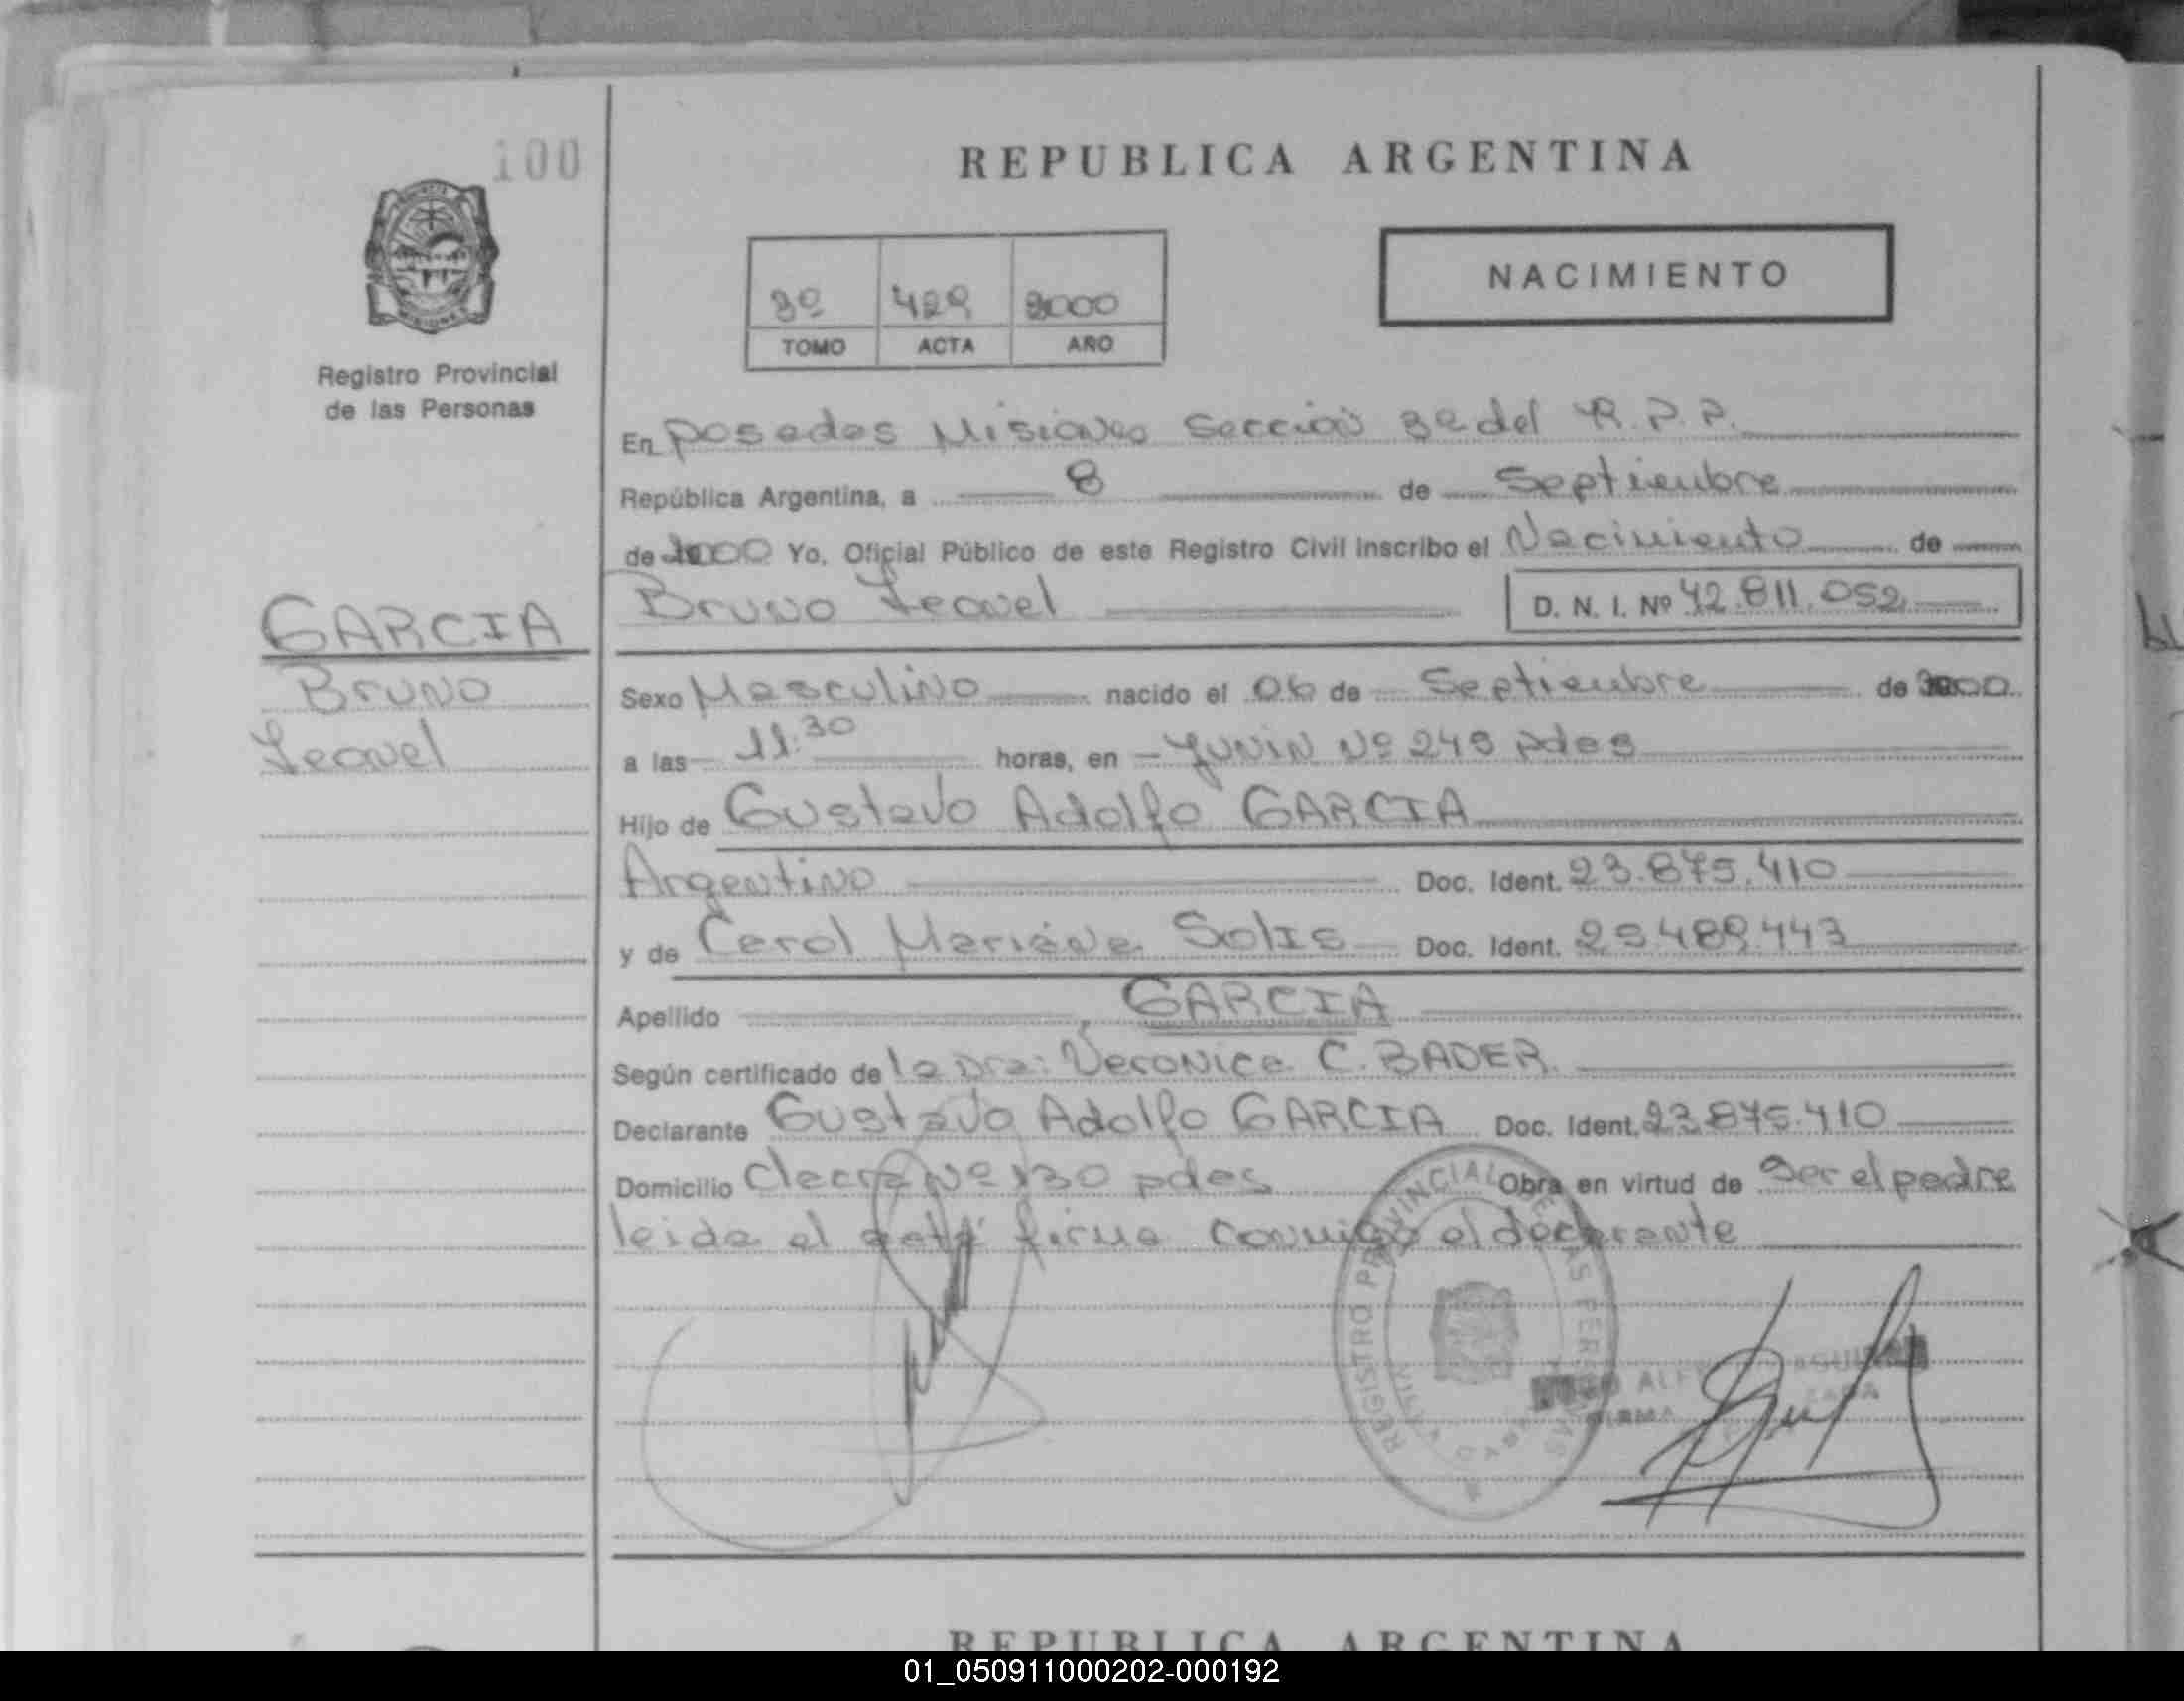 100
REPUBLICA ARGENTINA
NACIMIENTO
3º 429 2000
TOMO ACTA AÑO
Registro Provincial
de las Personas
En Posadas Misiones Sección 3ª del R.P.P.
República Argentina, a 8 de Septiembre
de 2000 Yo, Oficial Público de este Registro Civil inscribo el Nacimiento de
Bruno Leonel D. N. I. Nº 42.811.052
GARCIA
Bruno
Leonel
Sexo Masculino nacido el 06 de Septiembre de 2000
a las 11:30 horas, en Junin Nº 249 pdas
Hijo de Gustavo Adolfo GARCIA
Argentino Doc. Ident. 23.875.410
y de Carol Mariana Solis Doc. Ident. 25.489.443
Apellido GARCIA
Según certificado de la Dra: Veronica C. BADER
Declarante Gustavo Adolfo GARCIA Doc. Ident. 23.875.410
Domicilio Chacra Nº 130 pdas Obra en virtud de Ser el padre
leida el acta firma conmigo el declarante
REGISTRO PROVINCIAL DE LAS PERSONAS
REPUBLICA ARGENTINA
01_050911000202-000192